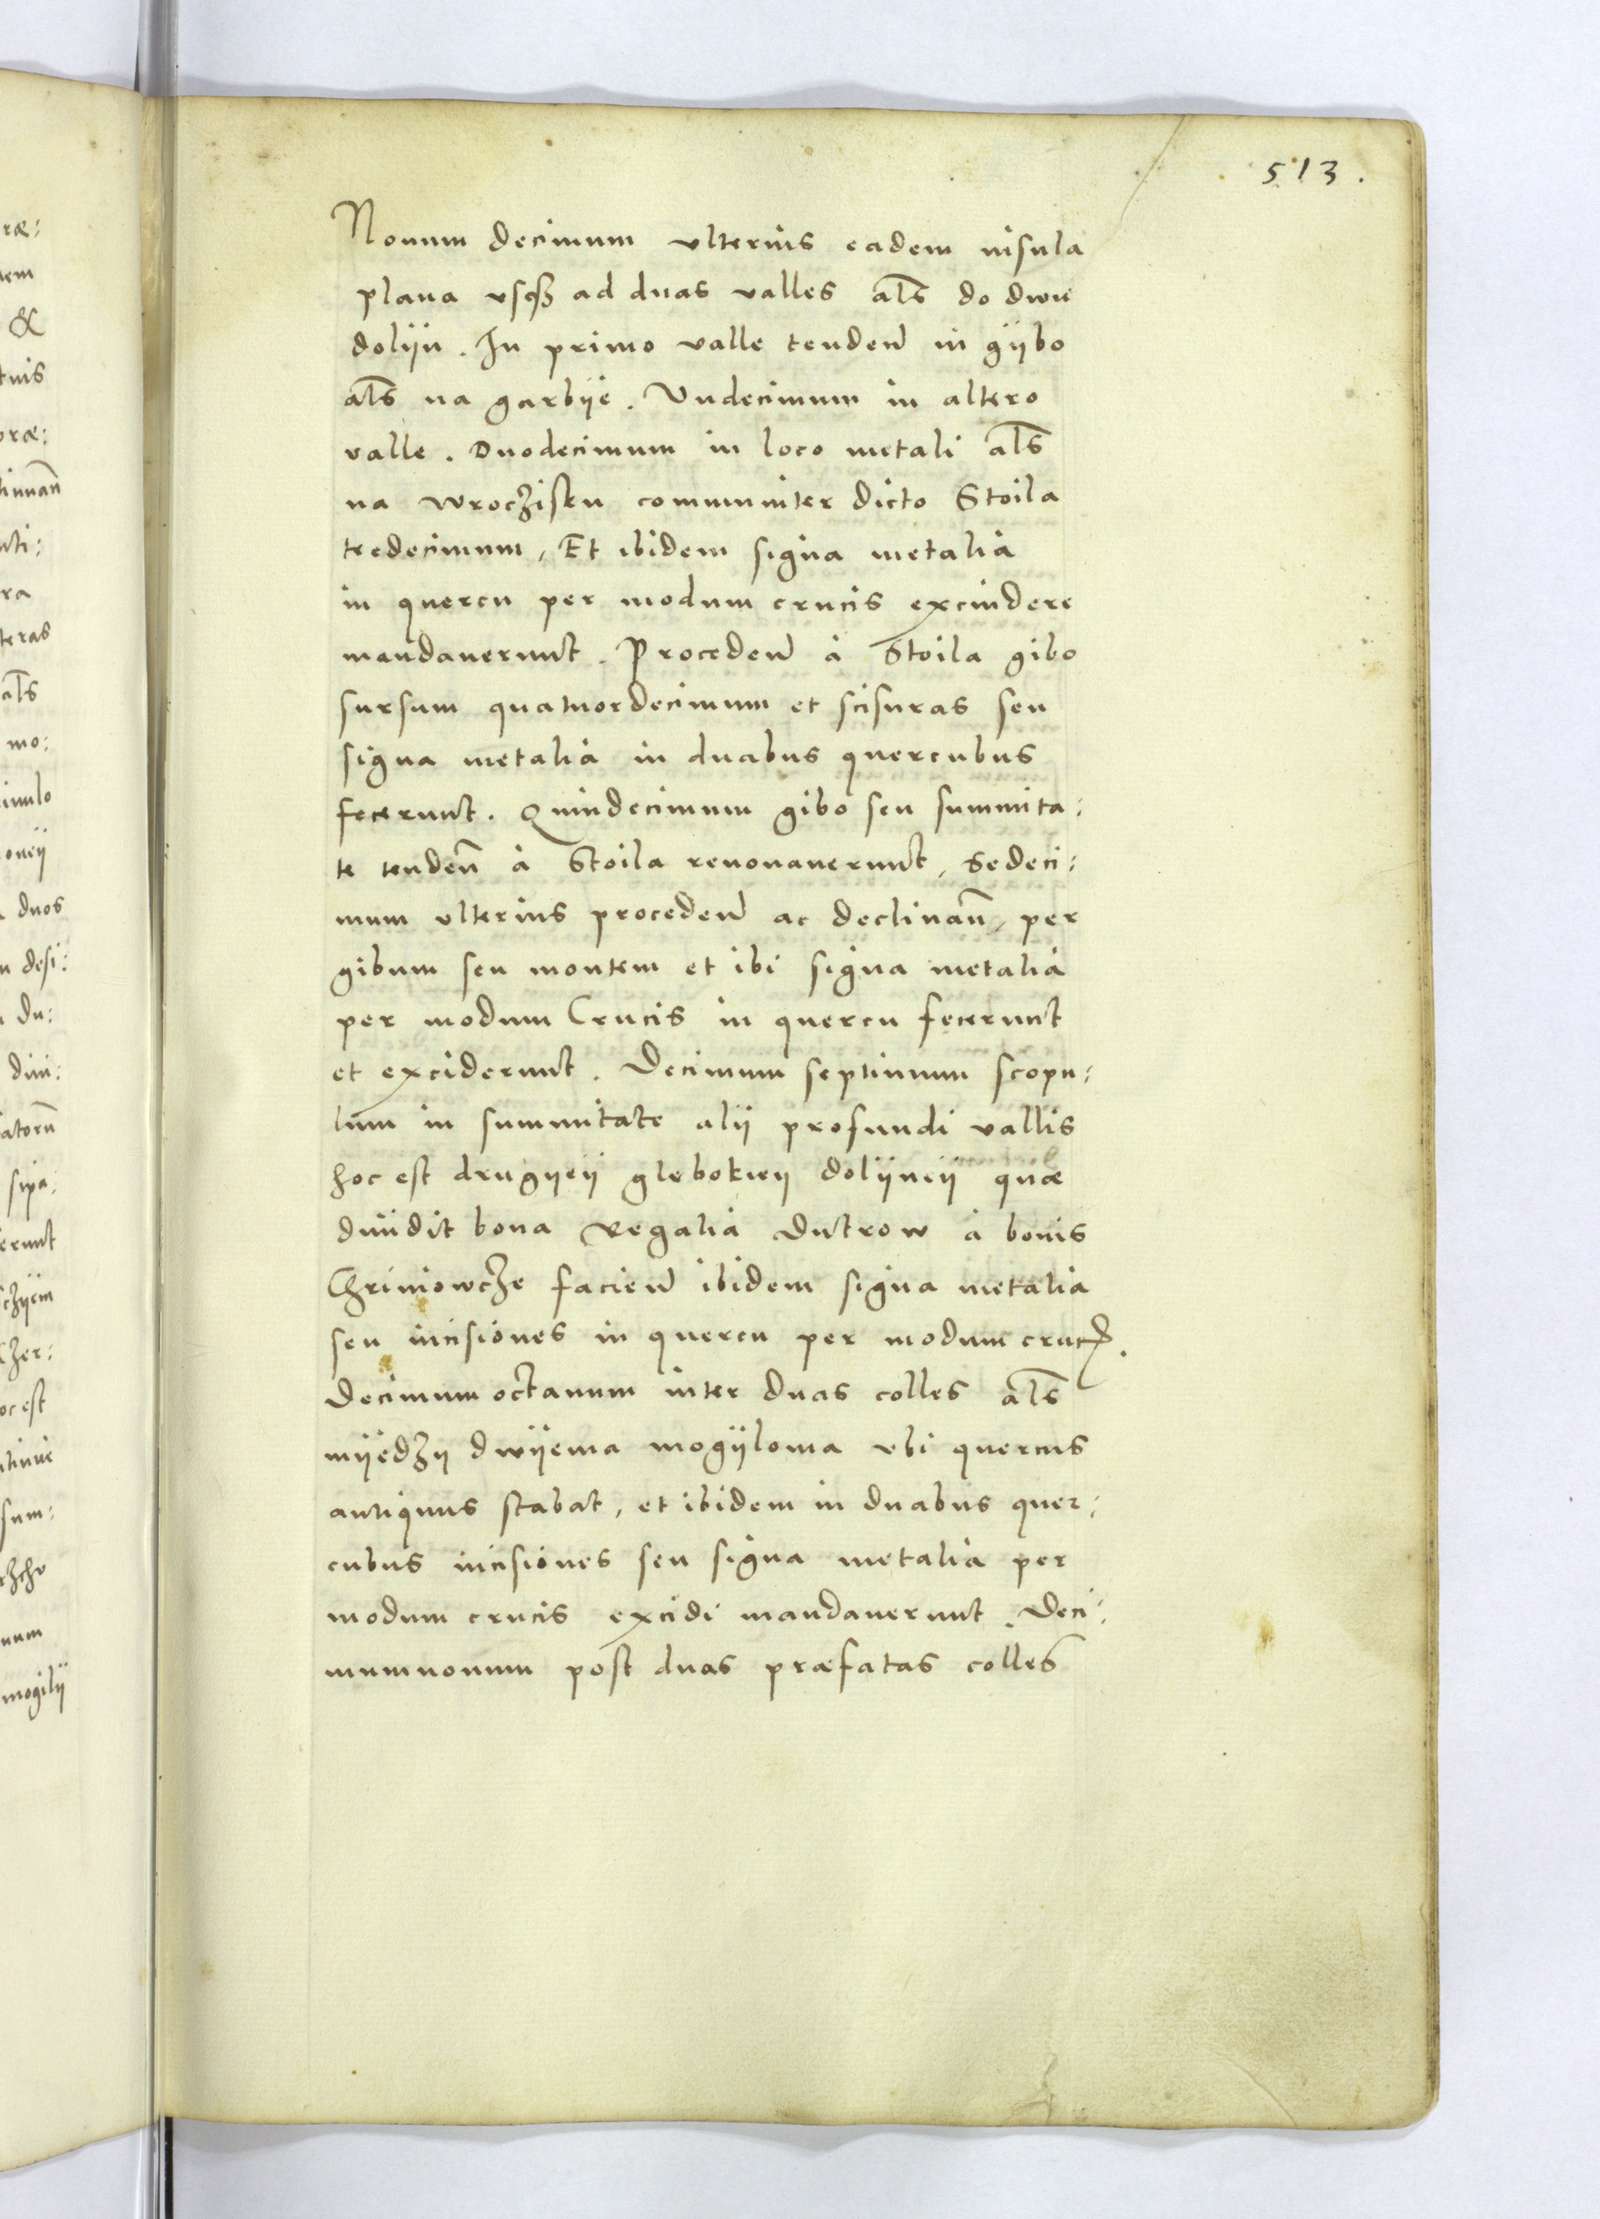 513.
Nonum decimum vlterius eadem insula
plana vsqȝ ad duas valles als do dwu
dolijn. In primo valle tenden in gijbo
als na garbije. Vndecimum in altero
valle. Duodecimum in loco metali als
na wroczisku communiter dicto Stoila
tredecimum, Et ibidem signa metalia
in quercu per modum crucis excindere
mandauerunt. Proceden à Stoila gibo
sursum quatuordecimum et scisuras seu
signa metalia in duabus quercubus
fecerunt. Quindecimum gibo seu summita:
te tenden à Stoila renouauerunt, Sedeci:
mum vlterius proceden ac declinan, per
gibum seu montem et ibi signa metalia
per modum Crucis in quercu fecerunt
et exciderunt. Decimum septimum scopu:
lum in summitate alij profundi vallis
hoc est drugijeij glebokieij dolijneij quæ
diuidit bona Regalia Dutrow à bonis
Chriniowcze facien ibidem signa metalia
seu incisiones in quercu per modum cruc.
Decimum octauum inter duas colles als
mijedzij dwijema mogijloma vbi quercus
antiquus stabat, et ibidem in duabus quer:
cubus incisiones seu signa metalia per
modum crucis excidi mandauerunt. Deci:
mumnonum post duas præfatas colles
ræ:
&
tuis
ra
teras
als
mo:
duos
desi:
du:
sipa:
Czer:
sum:
mogilij